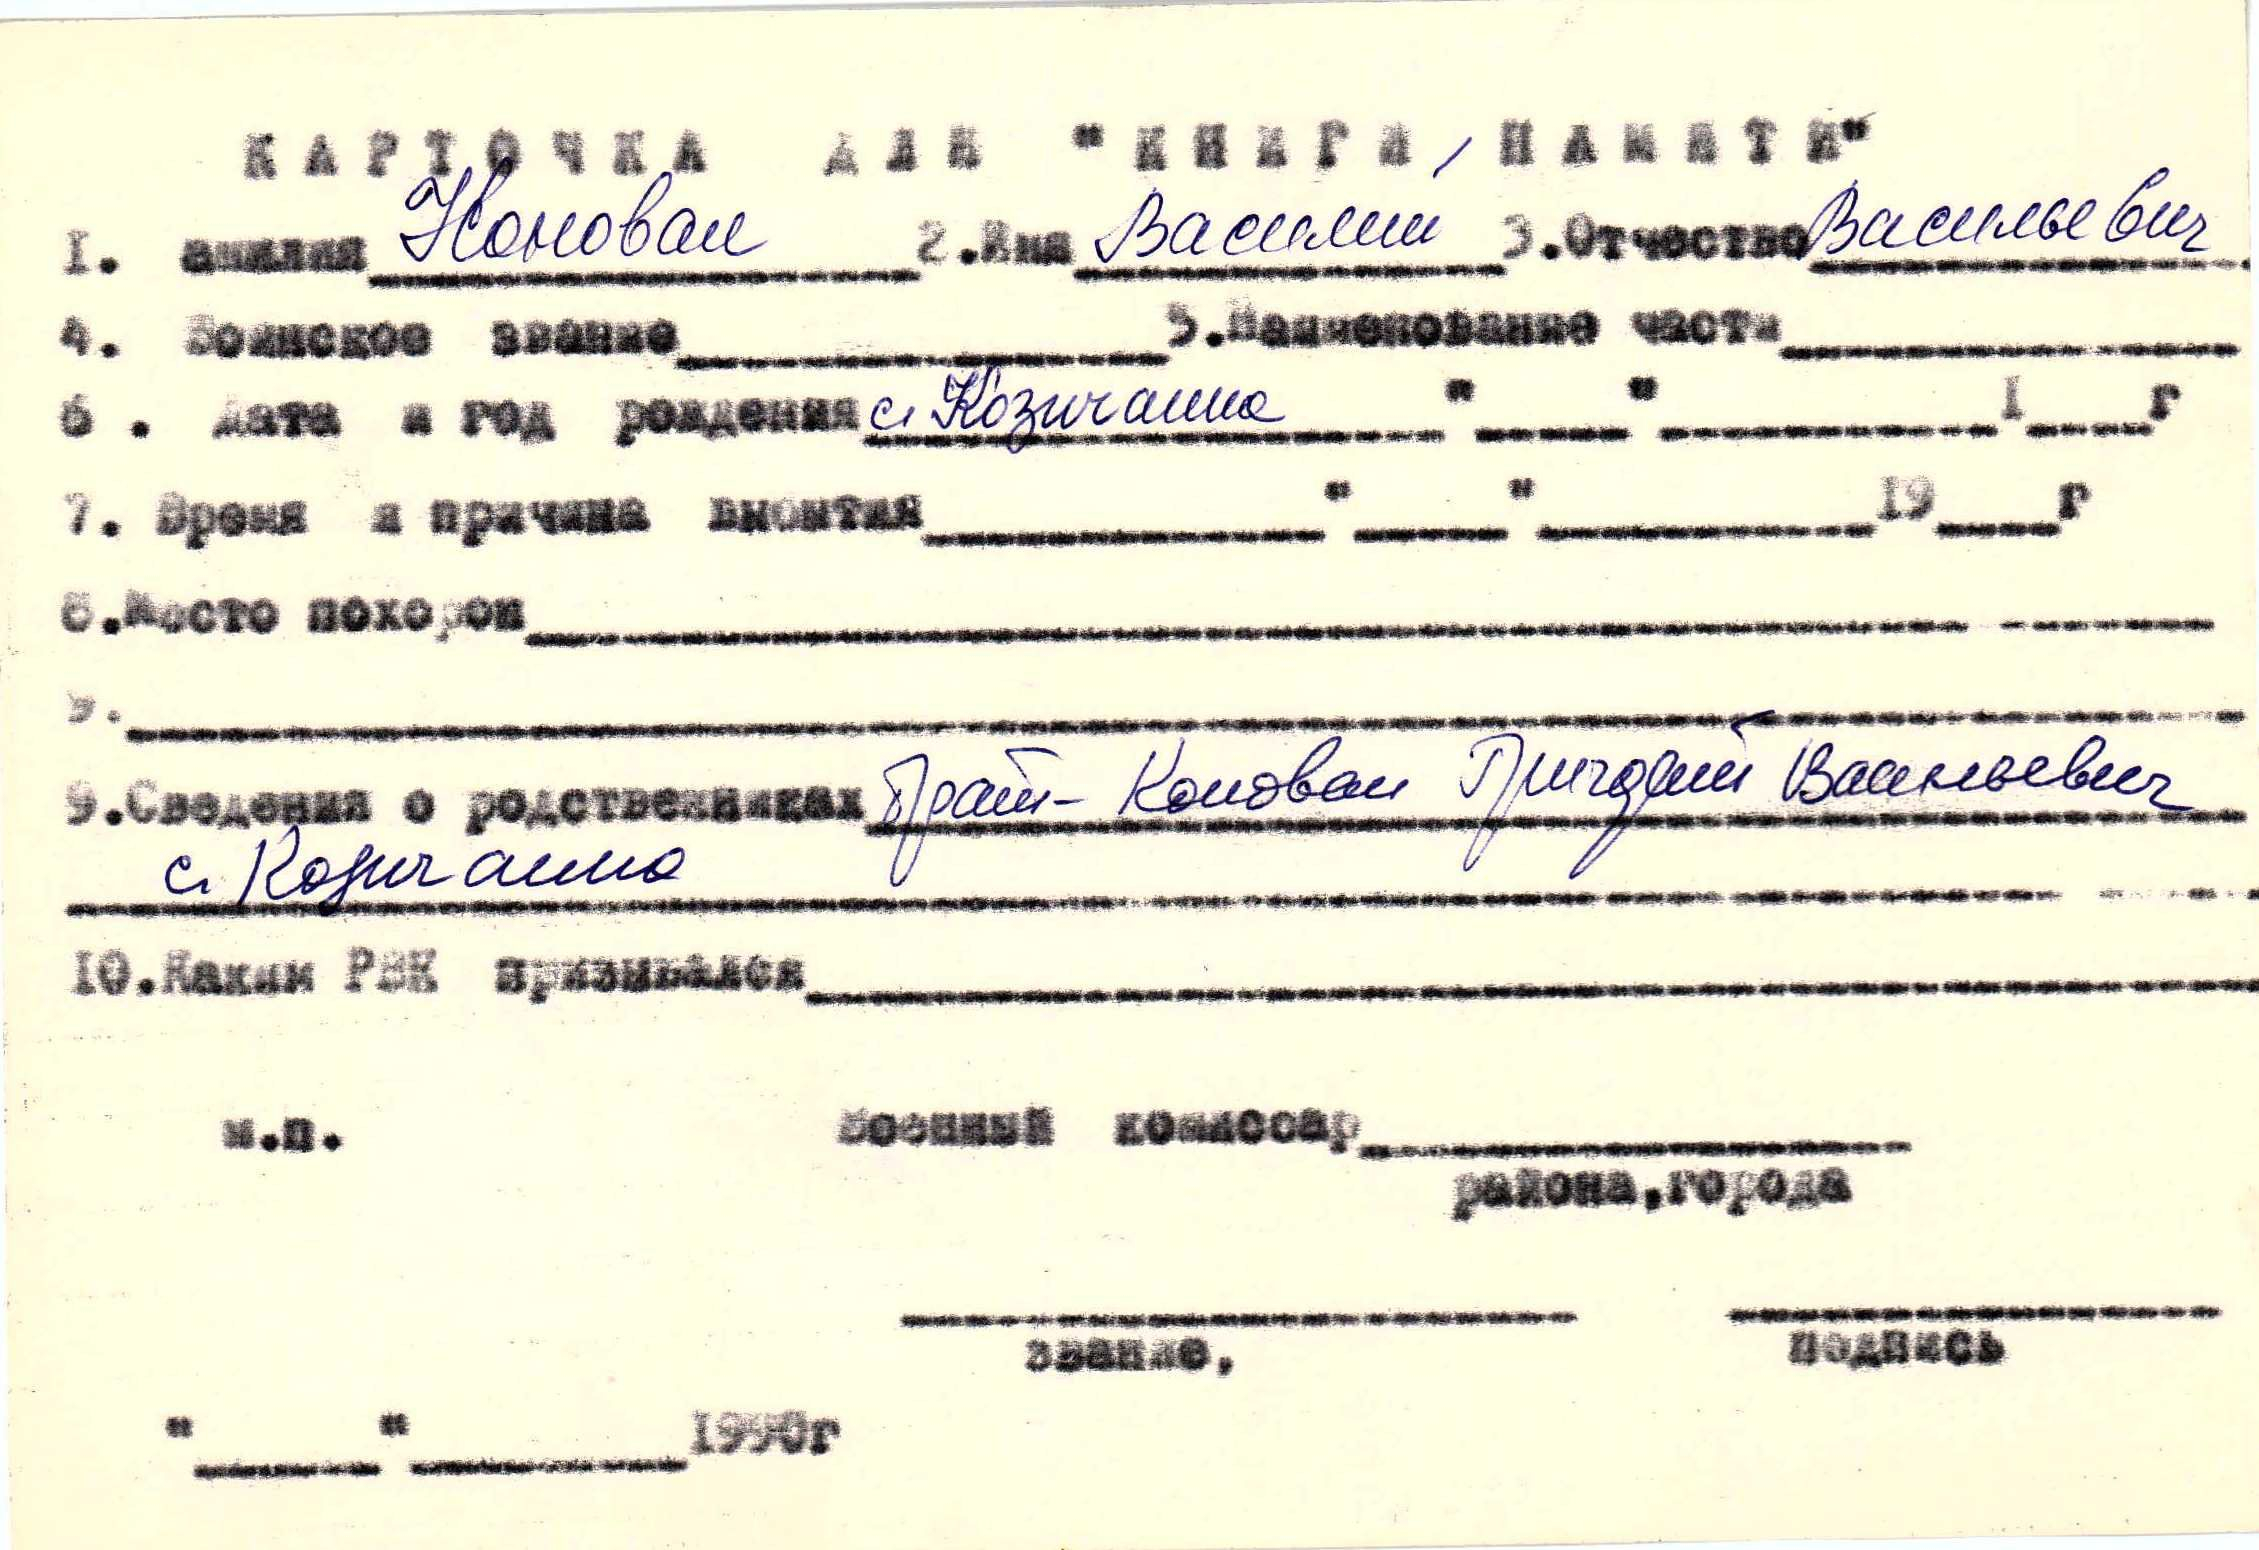 КАРТОЧКА ДЛЯ "КНИГИ ПАМЯТИ"
I. амилия Коновал 2.Имя Василий 3.Отчество Васильевич
4. Воинское звание 5.Наименование части
6. Дата и год рождения с. " " I г
7. Время и причина выбытия " " 19 г
8.Место похорон
9.
9.Сведения о родственниках Брат- Коновал Григорий Васильевич
с.
10.Каким РВК призывался
м.п. Военный комиссар
района,города
звание, подпись
" " 1990г